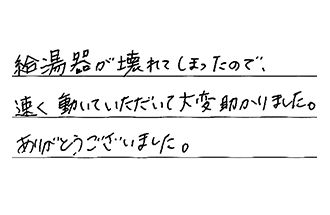 給湯器が壊れてしまったので、
速く動いていただいて大変助かりました。
ありがとうございました。